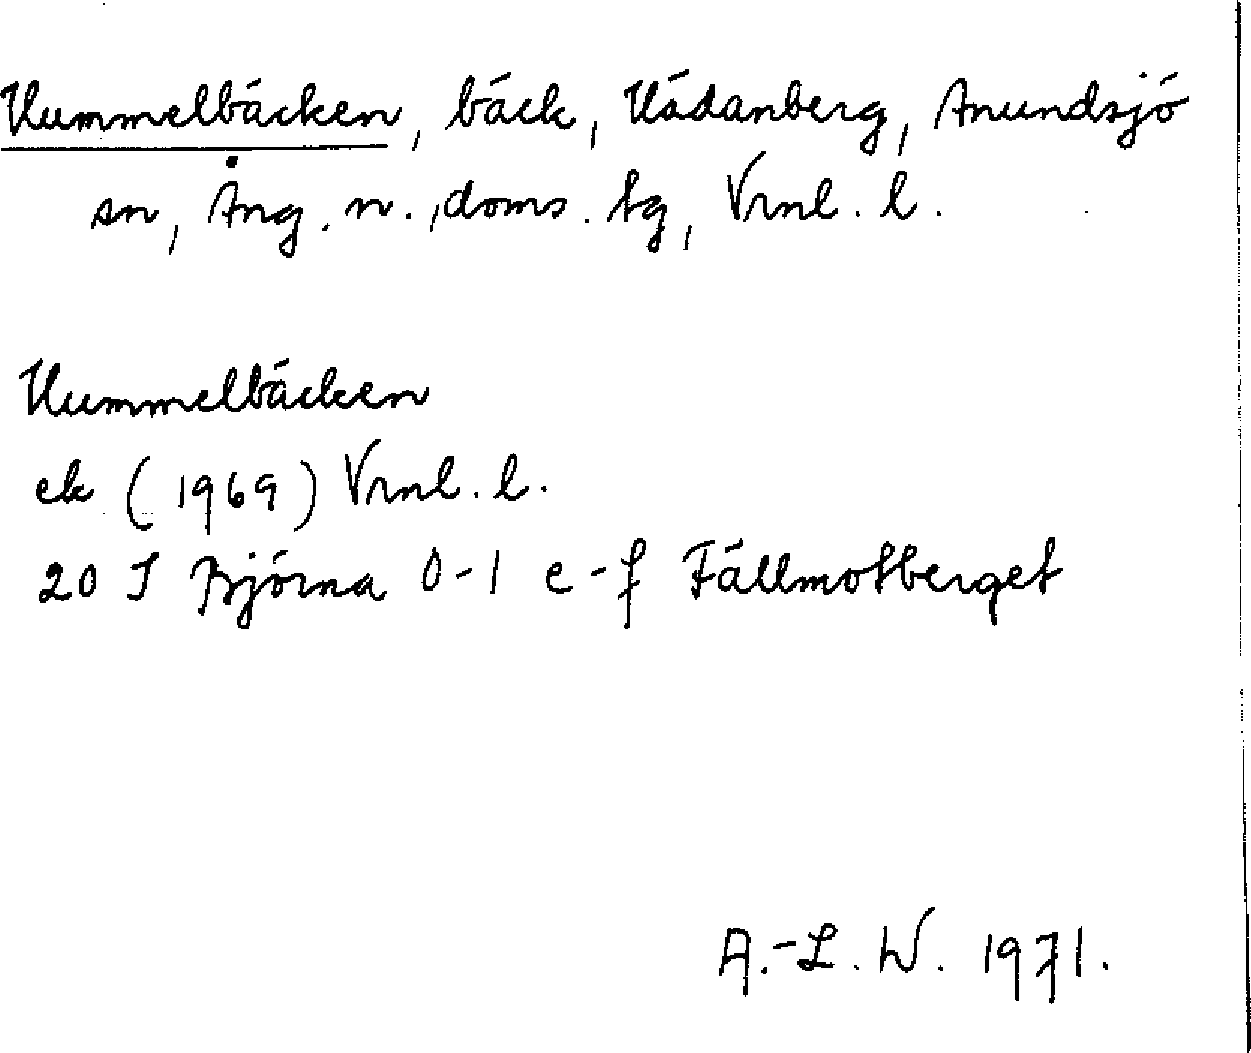 Hummelbäcken, bäck, Hädanberg, Anundsjö
sn, Ång. n., doms. tg, Vrnl. l.
Hummelbäcken
ek (1969) Vrnl. l.
20 J Björna 0-1 e-f Fällmotberget
A.-L. W. 1971.